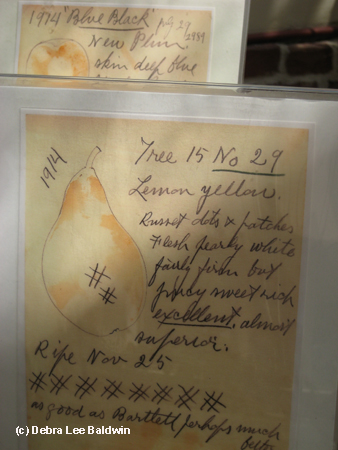 1914 'Blue Black' pg 29
1989
New Plum
skin deep blue
1914
Tree 15 No 29
Lemon yellow.
Russet dots & patches
Flesh pearly white
fairly firm but
juicy sweet rich
excellent, almost
superior.
Ripe Nov 25
# # # # # # # #
as good as Bartlett perhaps much
better
(c) Debra Lee Baldwin